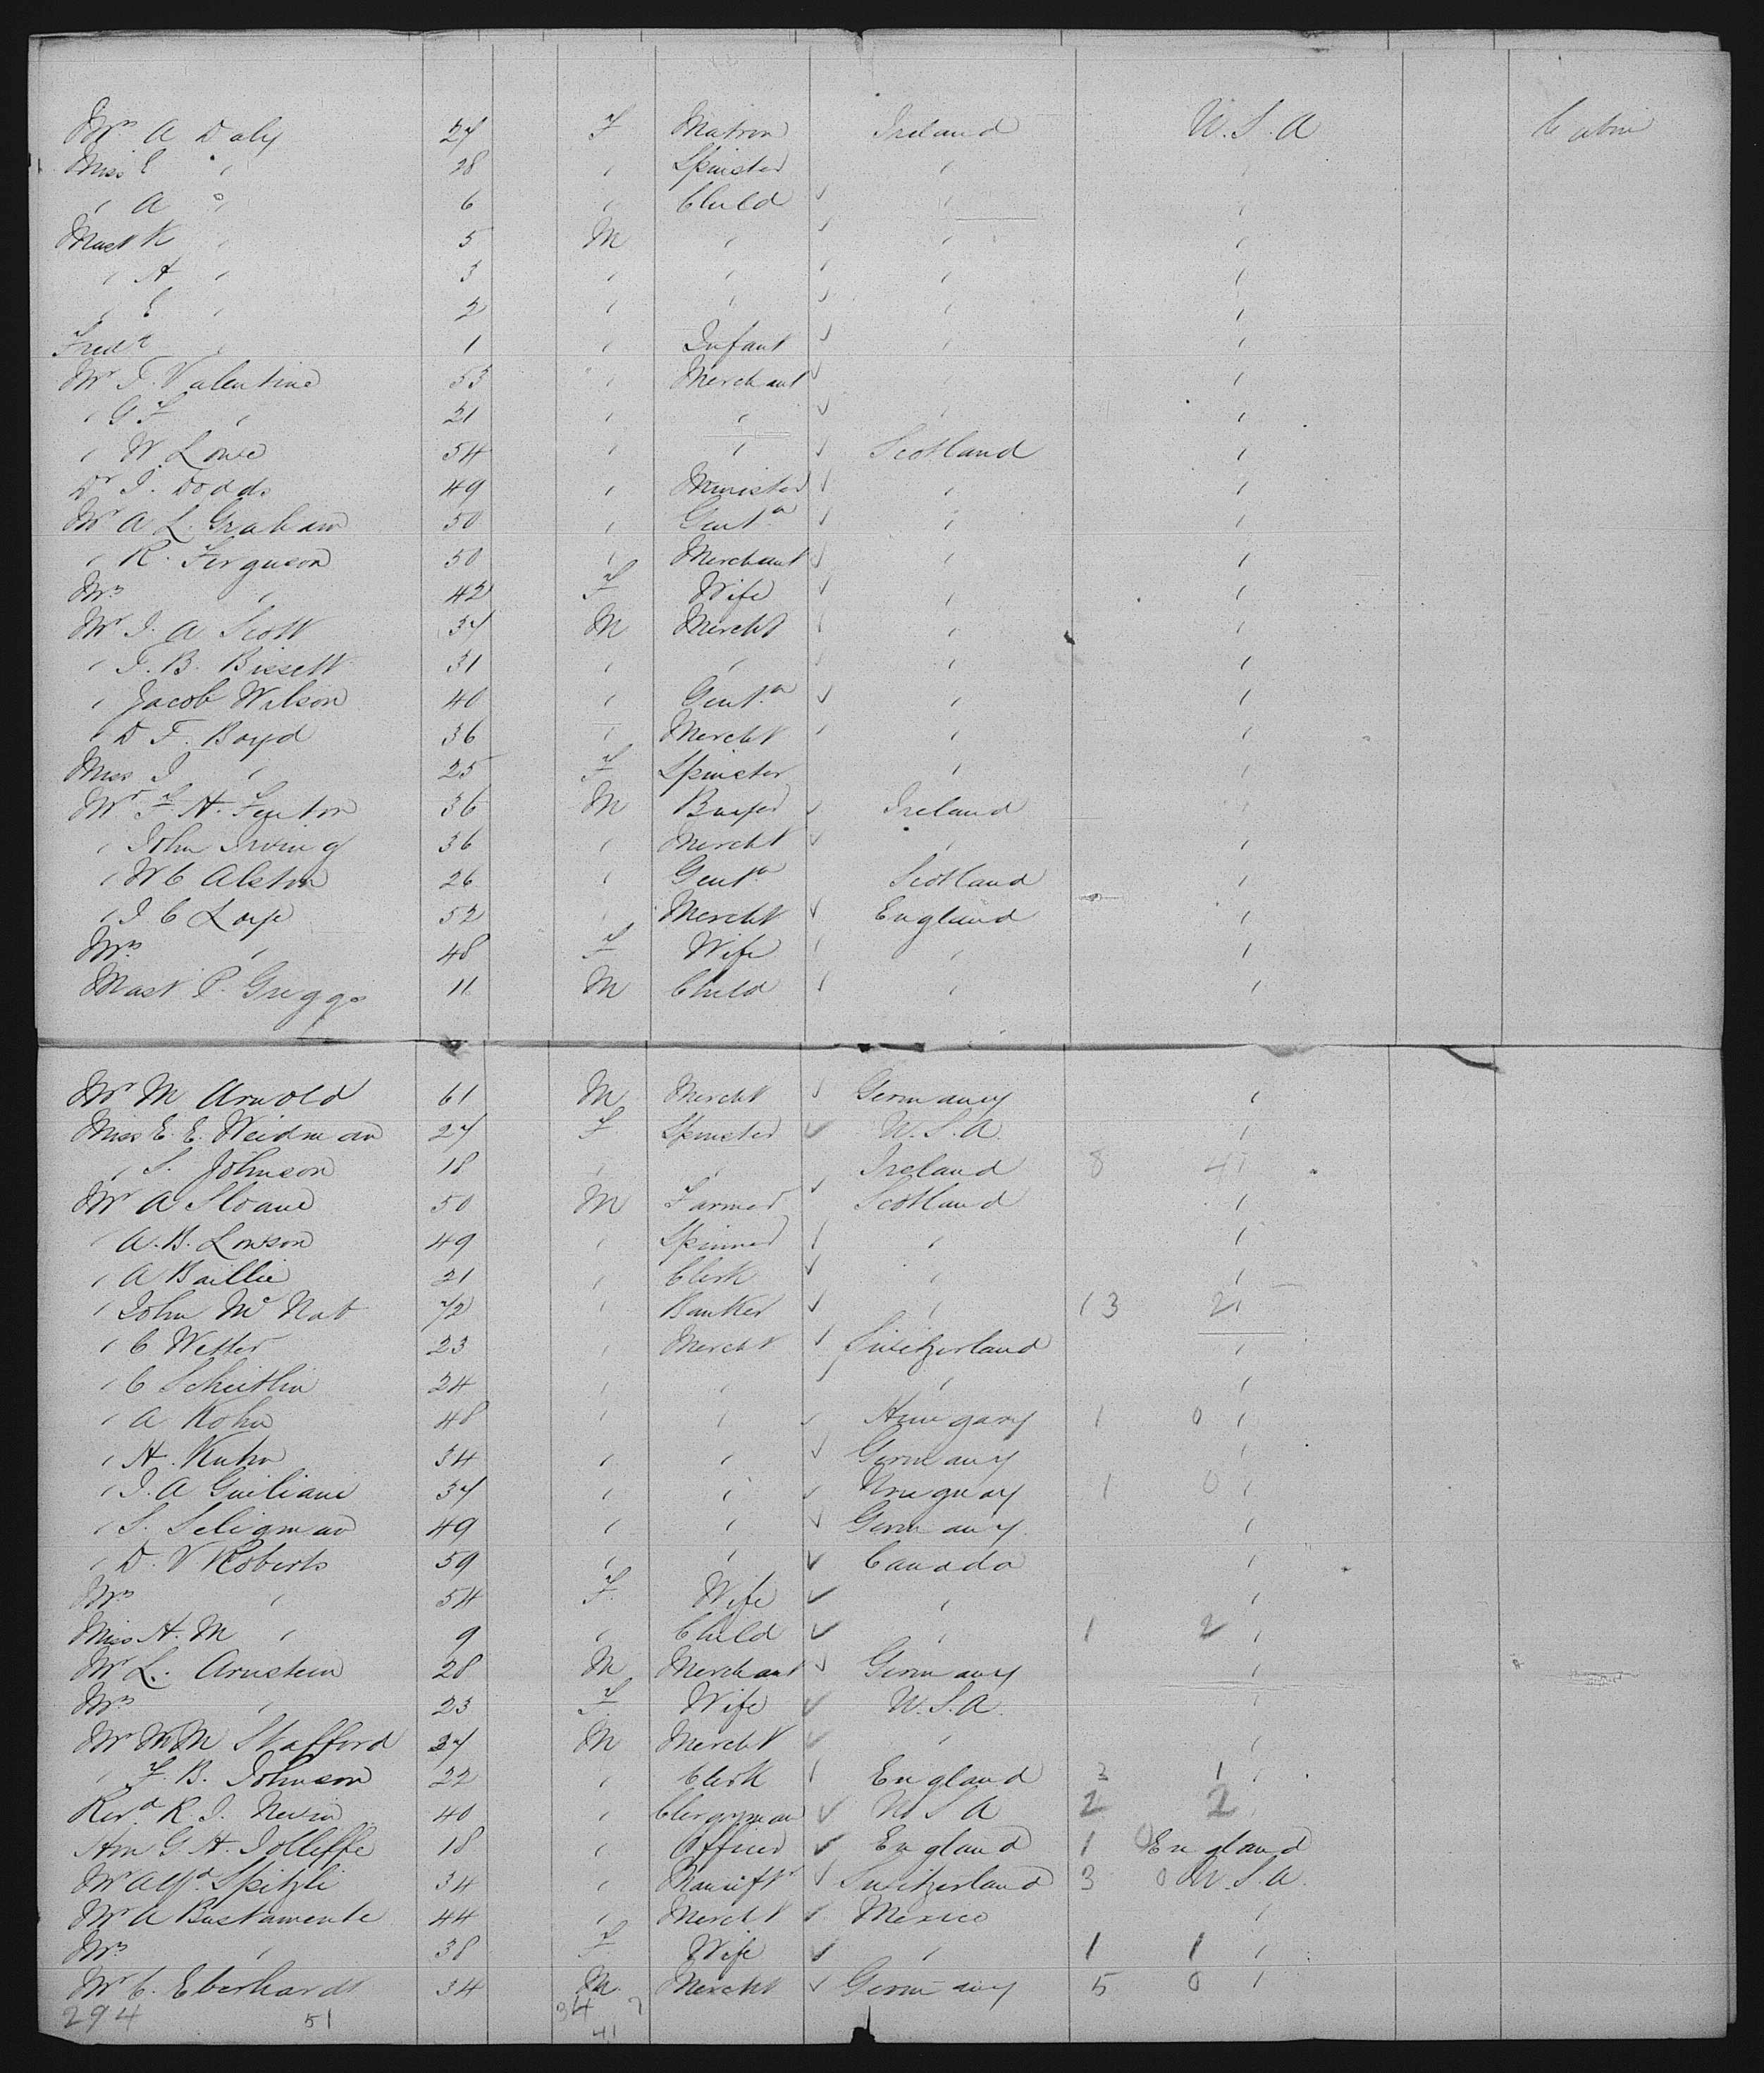 Mrs A Daly 27 F Matron Ireland U.S.A Cabin
Miss E " 28 " Spinster " "
" A " 6 " Child " "
Mast K " 5 M " " "
" H " 3 " " " "
" E " 2 " " " "
Fredk " 1 " Infant " "
Mr T. Valentine 53 " Merchant " "
" G F " 21 " " " "
" W Lowe 54 " " Scotland "
Dr J. Dodds 49 " Minister " "
Mr A L. Graham 50 " Gentn " "
" R. Ferguson 50 " Merchant " "
Mrs " 42 F Wife " "
Mr J. A Scott 37 M Mercht " "
" F. B. Bissett 31 " " " "
" Jacob Wilson 40 " Gentn " "
" D F. Boyd 36 " Mercht " "
Miss J " 25 F Spinster " "
Mr F. H. Fenton 36 M Buyer Ireland "
" John Irving 36 " Mercht " "
" W C Alston 26 " Gentn Scotland "
" J C Loye 52 " Mercht England "
Mrs " 48 F Wife " "
Mast P. Griggs 11 M Child " "
Mr M Arnold 61 M Mercht Germany "
Miss E. E. Weidman 27 F Spinster U.S.A. "
" S. Johnson 18 " " Ireland 8 4 "
Mr A Sloane 50 M Farmer Scotland "
" A. B. Lowson 49 " Spinner " "
" A Baillie 21 " Clerk " "
" John Mc Nab 72 " Banker " 13 2 "
" C Wetter 23 " Mercht Switzerland "
" C Scheitlin 24 " " " "
" A Kohn 48 " " Hungary 1 0 "
" H. Kuhn 34 " " Germany "
" J. A Guiliani 37 " " Uruguay 1 0 "
" S. Seligman 49 " " Germany "
" D. V Roberts 59 " " Canada "
Mrs " 54 F. Wife " "
Miss H. M " 9 " Child " 1 2 "
Mr L. Arnstein 28 M Merchant Germany "
Mrs " 23 F Wife U.S.A. "
Mr W M Stafford 27 M Mercht " "
" F. B. Johnson 22 " Clerk England 3 1 "
Revd R. J. Nevin 40 " Clergyman U S A 2 2 "
Hon G. H. Jolliffe 18 " Officer England 1 0 England
Mr Alfd Spitzli 34 " Manuftr Switzerland 3 0 U.S.A.
Mr A Bustamente 44 " Mercht Mexico "
Mrs " 38 F Wife " 1 1 "
Mr C. Eberhardt 34 M. Mercht Germany 5 0 "
294 51 34 7
41